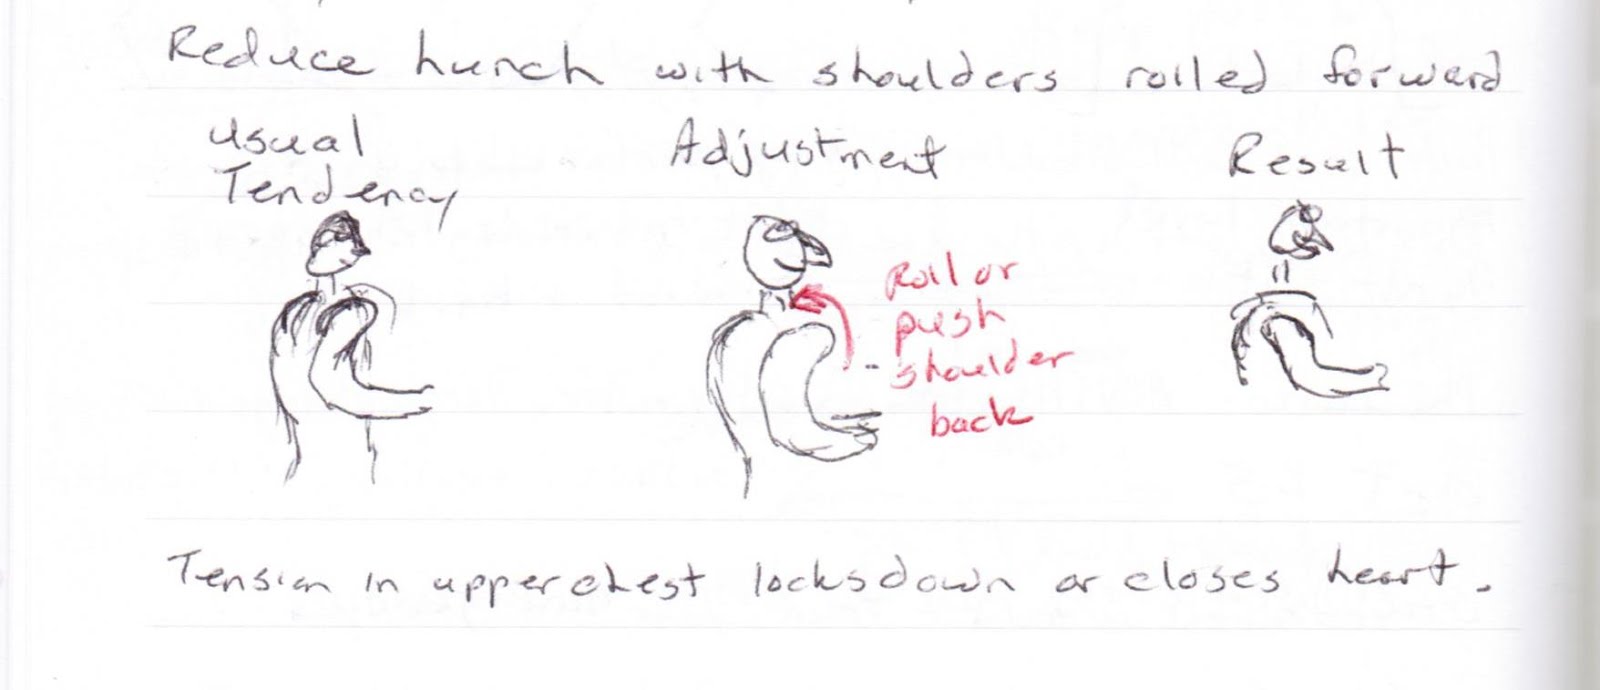 Reduce hunch with shoulders rolled forward
Usual
Tendency
Adjustment
Result
Roll or
push
shoulder
back
Tension in upper chest locks down or closes heart.